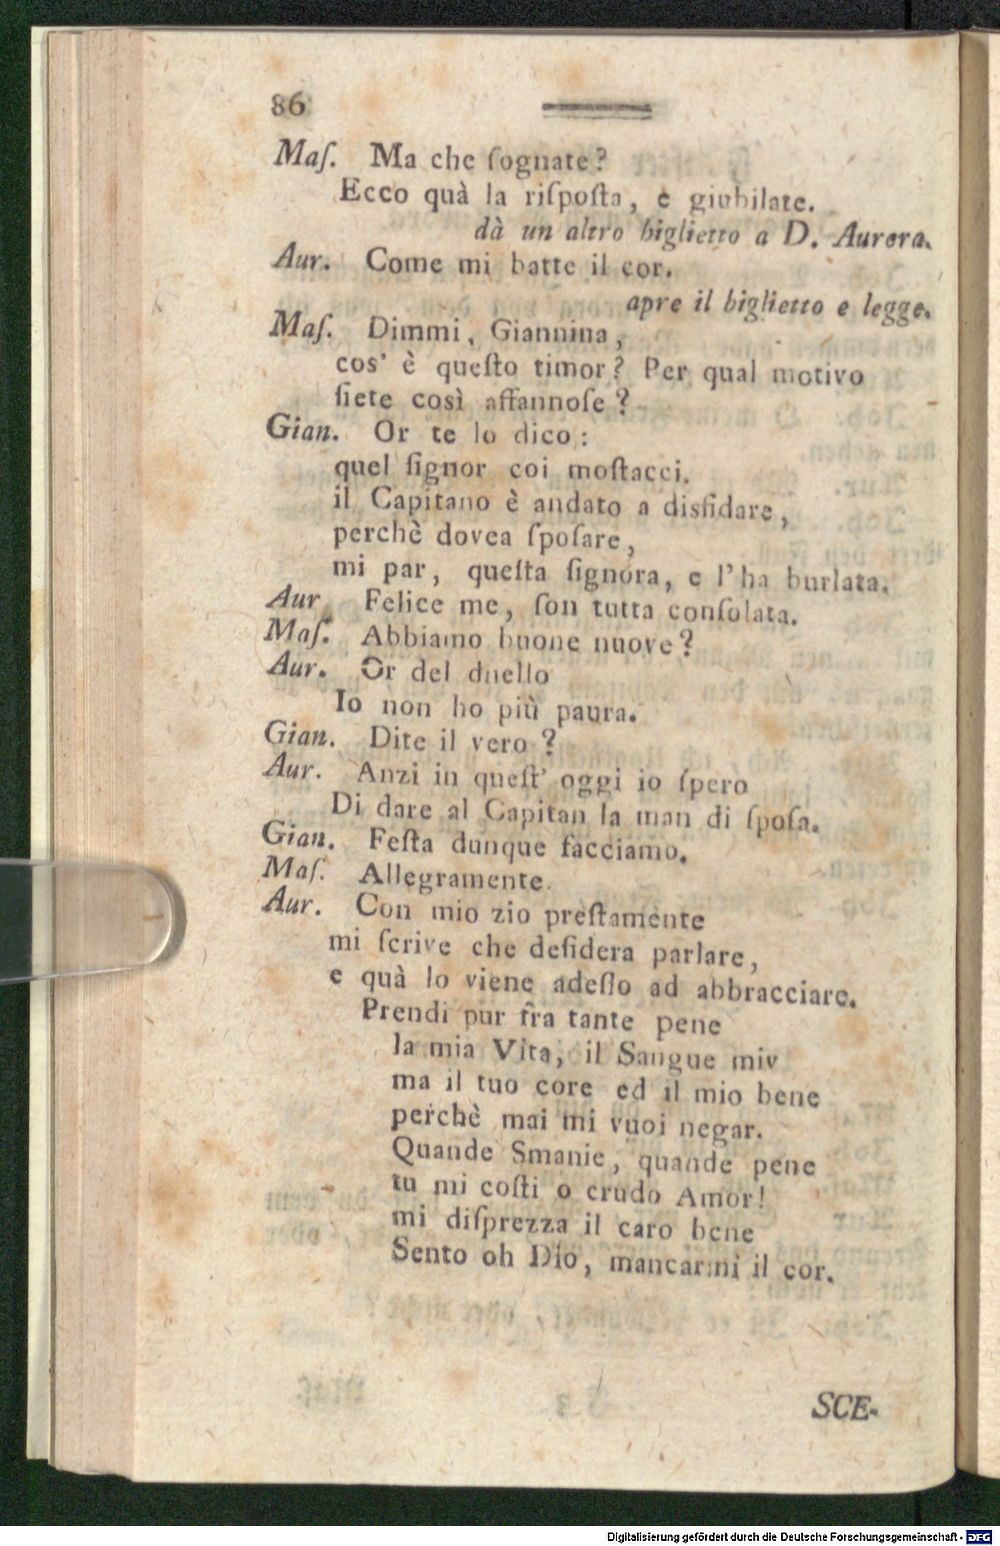 86
Maſ. Ma che ſognate?
Ecco quà la riſpoſta, e giubilate.
dà un altro biglietto a D. Aurora.
Aur. Come mi batte il cor.
apre il biglietto e legge.
Maſ. Dimmi, Giannina,
cos' è queſto timor? Per qual motivo
ſiete così affannoſe?
Gian. Or te lo dico:
quel ſignor coi moſtacci.
il Capitano è andato a disfidare,
perchè dovea ſpoſare,
mi par, queſta ſignora, e l'ha burlata.
Aur Felice me, ſon tutta conſolata.
Maſ. Abbiamo buone nuove?
Aur. Or del duello
Io non ho più paura.
Gian. Dite il vero?
Aur. Anzi in queſt' oggi io ſpero
Di dare al Capitan la man di ſpoſa.
Gian. Feſta dunque facciamo.
Maſ. Allegramente.
Aur. Con mio zio preſtamente
mi ſcrive che deſidera parlare,
e quà lo viene adeſſo ad abbracciare.
Prendi pur fra tante pene
la mia Vita, il Sangue miv
ma il tuo core ed il mio bene
perchè mai mi vuoi negar.
Quande Smanie, quande pene
tu mi coſti o crudo Amor!
mi diſprezza il caro bene
Sento oh Dio, mancarmi il cor.
SCE-
Digitalisierung gefördert durch die Deutsche Forschungsgemeinschaft - DFG